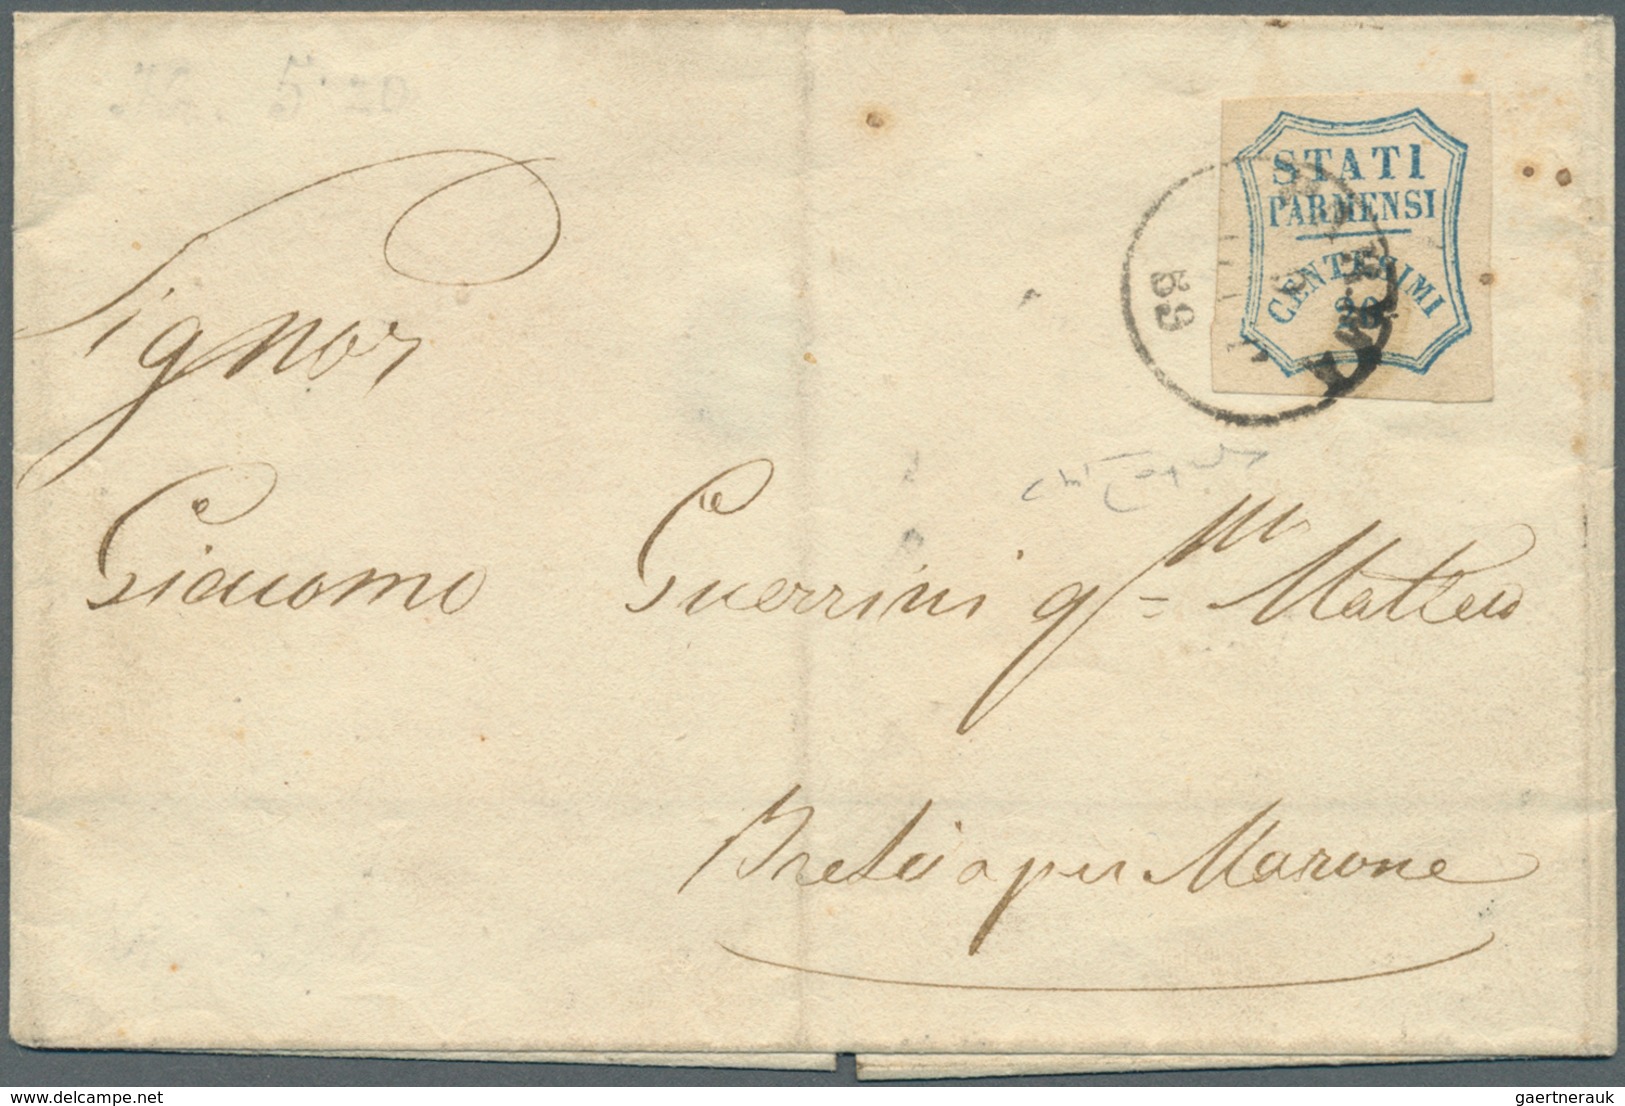 STATI
PARMENSI
CENTESIMI
20
59
Signor
Giacomo Guerrini qm = Matteo
Brescia per Marone
gaertnerauk